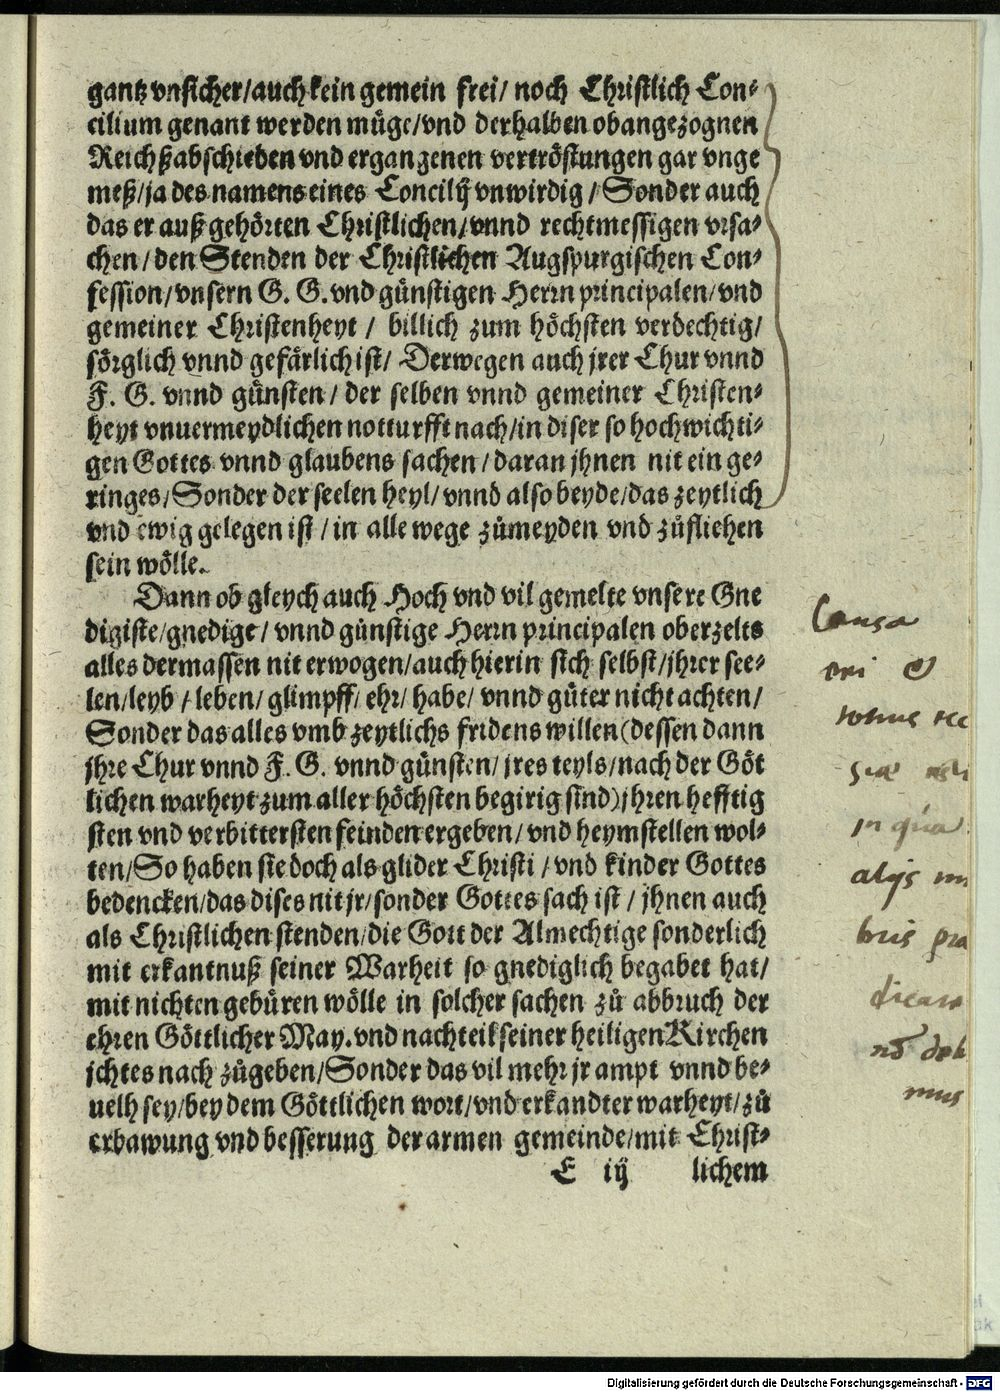 gantz vnsicher/auch kein gemein frei/ noch Christlich Con⸗
cilium genant werden müge/vnd derhalben obangezognen
Reichßabschieden vnd ergangenen vertröstungen gar vnge
meß/ja des namens eines Concilij vnwirdig/Sonder auch
das er auß gehörten Christlichen/vnnd rechtmessigen vrsa⸗
chen/den Stenden der Christlichen Augspurgischen Con⸗
fession/vnsern G. G. vnd günstigen Herrn principalen/vnd
gemeiner Christenheyt/ billich zum höchsten verdechtig/
sörglich vnnd gefärlich ist/ Derwegen auch jrer Chur vnnd
F. G. vnnd günsten/ der selben vnnd gemeiner Christen⸗
heyt vnuermeydlichen notturfft nach/in diser so hochwichti⸗
gen Gottes vnnd glaubens sachen/daran jhnen nit ein ge⸗
ringes/Sonder der seelen heyl/vnnd also beyde/das zeytlich
vnd ewig gelegen ist/in alle wege zůmeyden vnd zůfliehen
sein wölle.
Dann ob gleych auch Hoch vnd vil gemelte vnsere Gne
digiste/gnedige/ vnnd günstige Herrn principalen oberzelts
alles dermassen nit erwogen/auch hierin sich selbst/jhrer see⸗
len/leyb/leben/glimpff/ehr/habe/vnnd güter nicht achten/
Sonder das alles vmb zeytlichs fridens willen(dessen dann
jhre Chur vnnd F. G. vnnd günsten/jres teyls/nach der Göt
lichen warheyt zum aller höchsten begirig sind)jhren hefftig
sten vnd verbittersten feinden ergeben/vnd heymstellen wol⸗
ten/So haben sie doch als glider Christi/vnd kinder Gottes
bedencken/das dises nit jr/sonder Gottes sach ist/jhnen auch
als Christlichen stenden/die Gott der Almechtige sonderlich
mit erkantnuß seiner Warheit so gnediglich begabet hat/
mit nichten gebüren wölle in solcher sachen zů abbruch der
ehren Göttlicher May.vnd nachteil seiner heiligen Kirchen
ichtes nach zůgeben/Sonder das vil mehr jr ampt vnnd be⸗
uelh sey/bey dem Göttlichen wort/vnd erkandter warheyt/zů
erbawung vnd besserung der armen gemeinde/mit Christ⸗
E iij lichem
Causa
&
in qua
alijs
mus
Digitalisierung gefördert durch die Deutsche Forschungsgemeinschaft - DFG